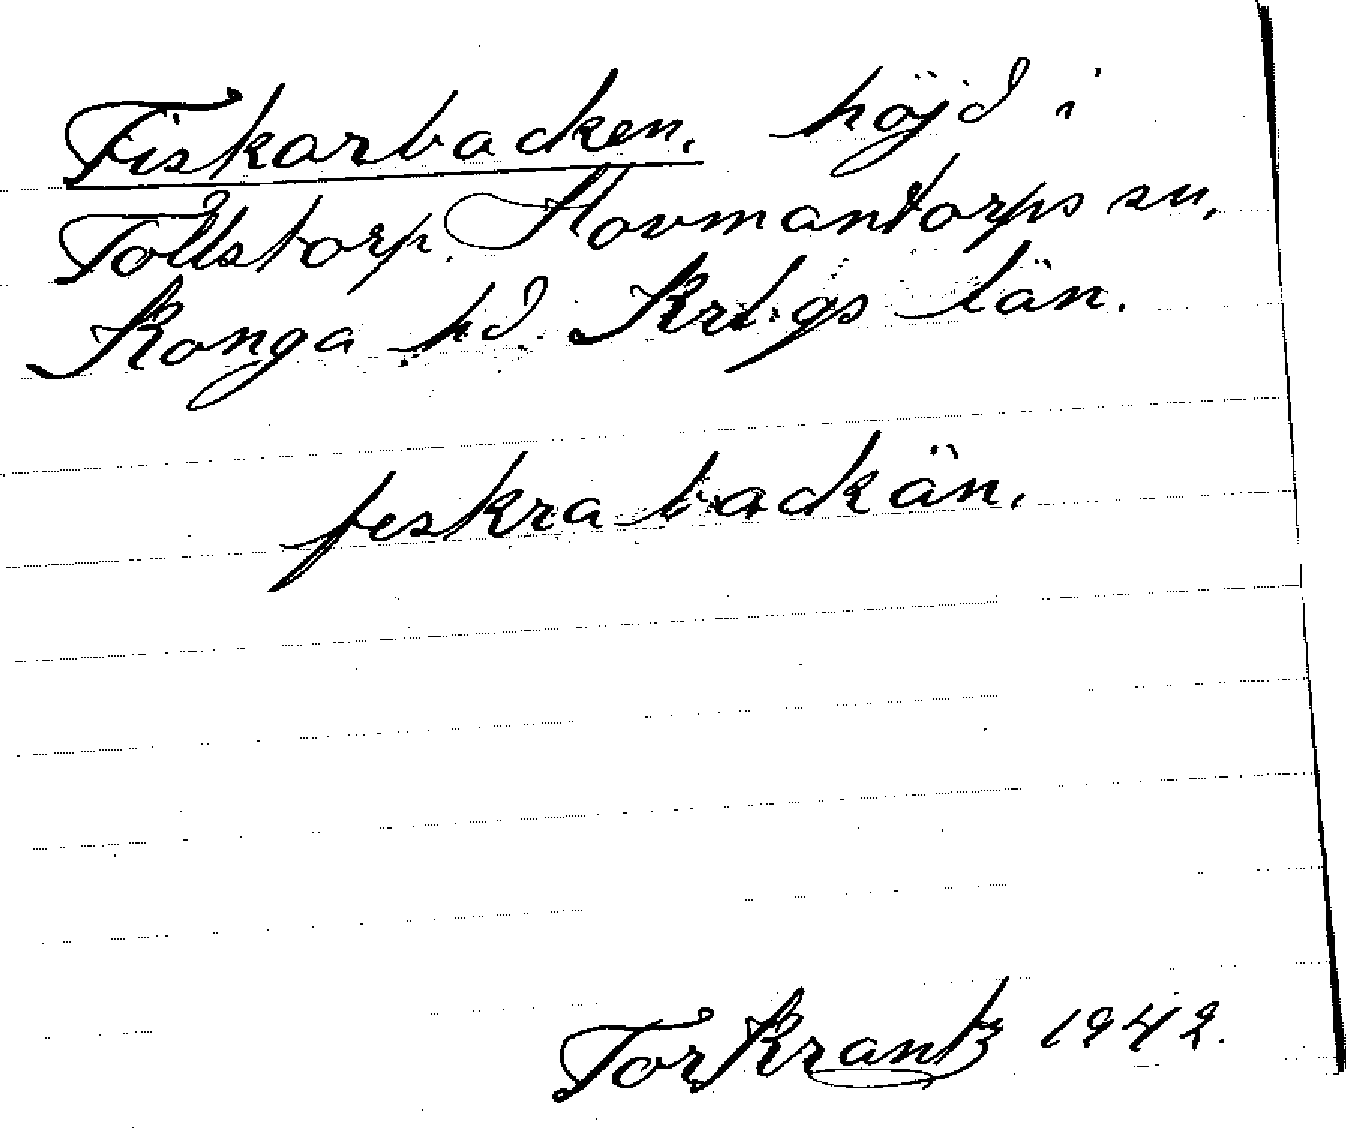 Fiskarbacken. höjd i
Tollstorp. Hovmantorps sn.
Konga hd Krbgs län.
feskrabackän.
Tor Krantz 1942.